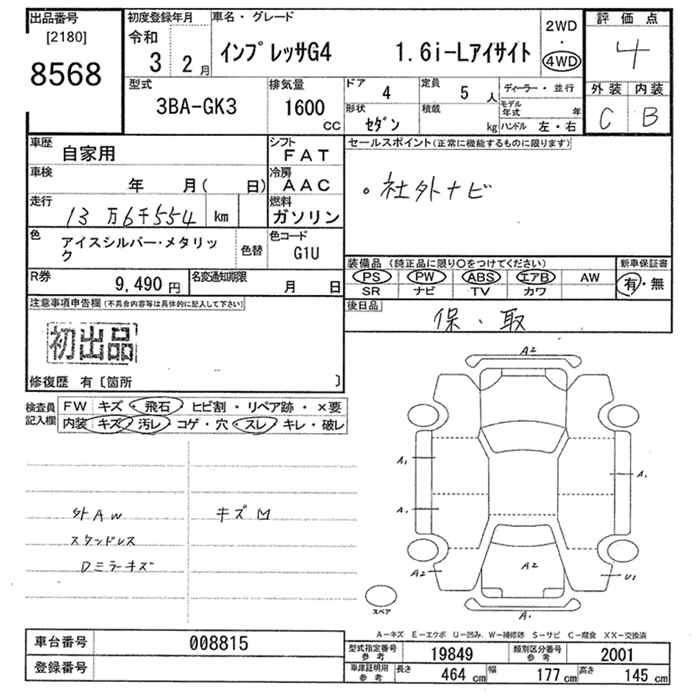 出品番号
[2180]
8568
初度登録年月
令和
3 2月
車名・グレード
インプレッサG4 1.6i-Lアイサイト
2WD
・
4WD
評価点
4
外装 内装
C B
型式
3BA-GK3
排気量
1600
CC
ドア 4
定員 5 人
形状 セダン
積載 kg
ディーラー・並行
モデル年式 年
ハンドル 左・右
車歴
自家用
シフト
FAT
車検
年 月( 日)
冷房
AAC
走行
13万6千554 km
燃料
ガソリン
色
アイスシルバー・メタリック
色替
色コード
G1U
R券
9,490円
名変通知期限
月 日
セールスポイント(正常に機能するものに限ります)
。社外ナビ
装備品 (純正品に限り○をつけてください)
PS PW ABS エアB AW
SR ナビ TV カワ
新車保証書
有・無
後日品
保・取
注意事項申告欄(不具合内容等は具体的に記入して下さい)
初出品
修復歴 有〔箇所 〕
検査員記入欄
FW キズ・飛石・ヒビ割・リペア跡・×要
内装 キズ・汚レ・コゲ・穴・スレ・キレ・破レ
外AW
キズ
Dミラーキズ
A2
A1
A1
A1
A2
A2
U1
A1
スペア
A－キズ E－エクボ U－凹み W－補修跡 S－サビ C－腐食 XX－交換済
車台番号
008815
登録番号
型式指定番号参考
19849
類別区分番号参考
2001
車庫証明用参考
長さ 464 cm
幅 177 cm
高さ 145 cm